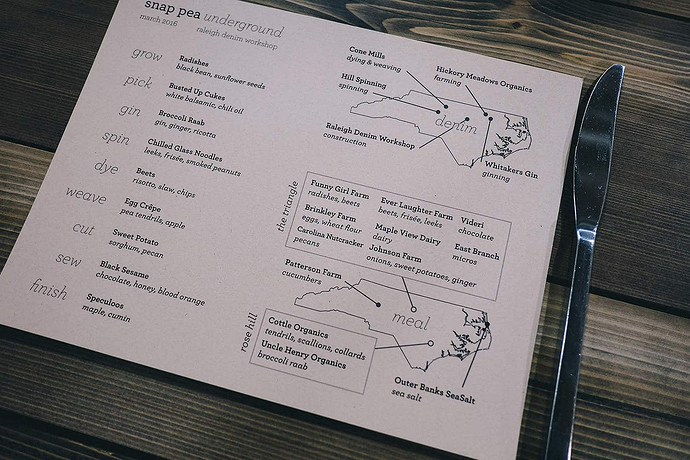 snap pea underground
march 2016 raleigh denim workshop
grow
Radishes
black bean, sunflower seeds
pick
Busted Up Cukes
white balsamic, chili oil
gin
Broccoli Raab
gin, ginger, ricotta
spin
Chilled Glass Noodles
leeks, frisée, smoked peanuts
dye
Beets
risotto, slaw, chips
weave
Egg Crêpe
pea tendrils, apple
cut
Sweet Potato
sorghum, pecan
sew
Black Sesame
chocolate, honey, blood orange
finish
Speculoos
maple, cumin
Cone Mills
dying & weaving
Hickory Meadows Organics
farming
Hill Spinning
spinning
denim
Raleigh Denim Workshop
construction
Whitakers Gin
ginning
the triangle
Funny Girl Farm
radishes, beets
Ever Laughter Farm
beets, frisée, leeks
Videri
chocolate
Brinkley Farm
eggs, wheat flour
Maple View Dairy
dairy
East Branch
micros
Carolina Nutcracker
pecans
Johnson Farm
onions, sweet potatoes, ginger
Patterson Farm
cucumbers
meal
rose hill
Cottle Organics
tendrils, scallions, collards
Uncle Henry Organics
broccoli raab
Outer Banks SeaSalt
sea salt